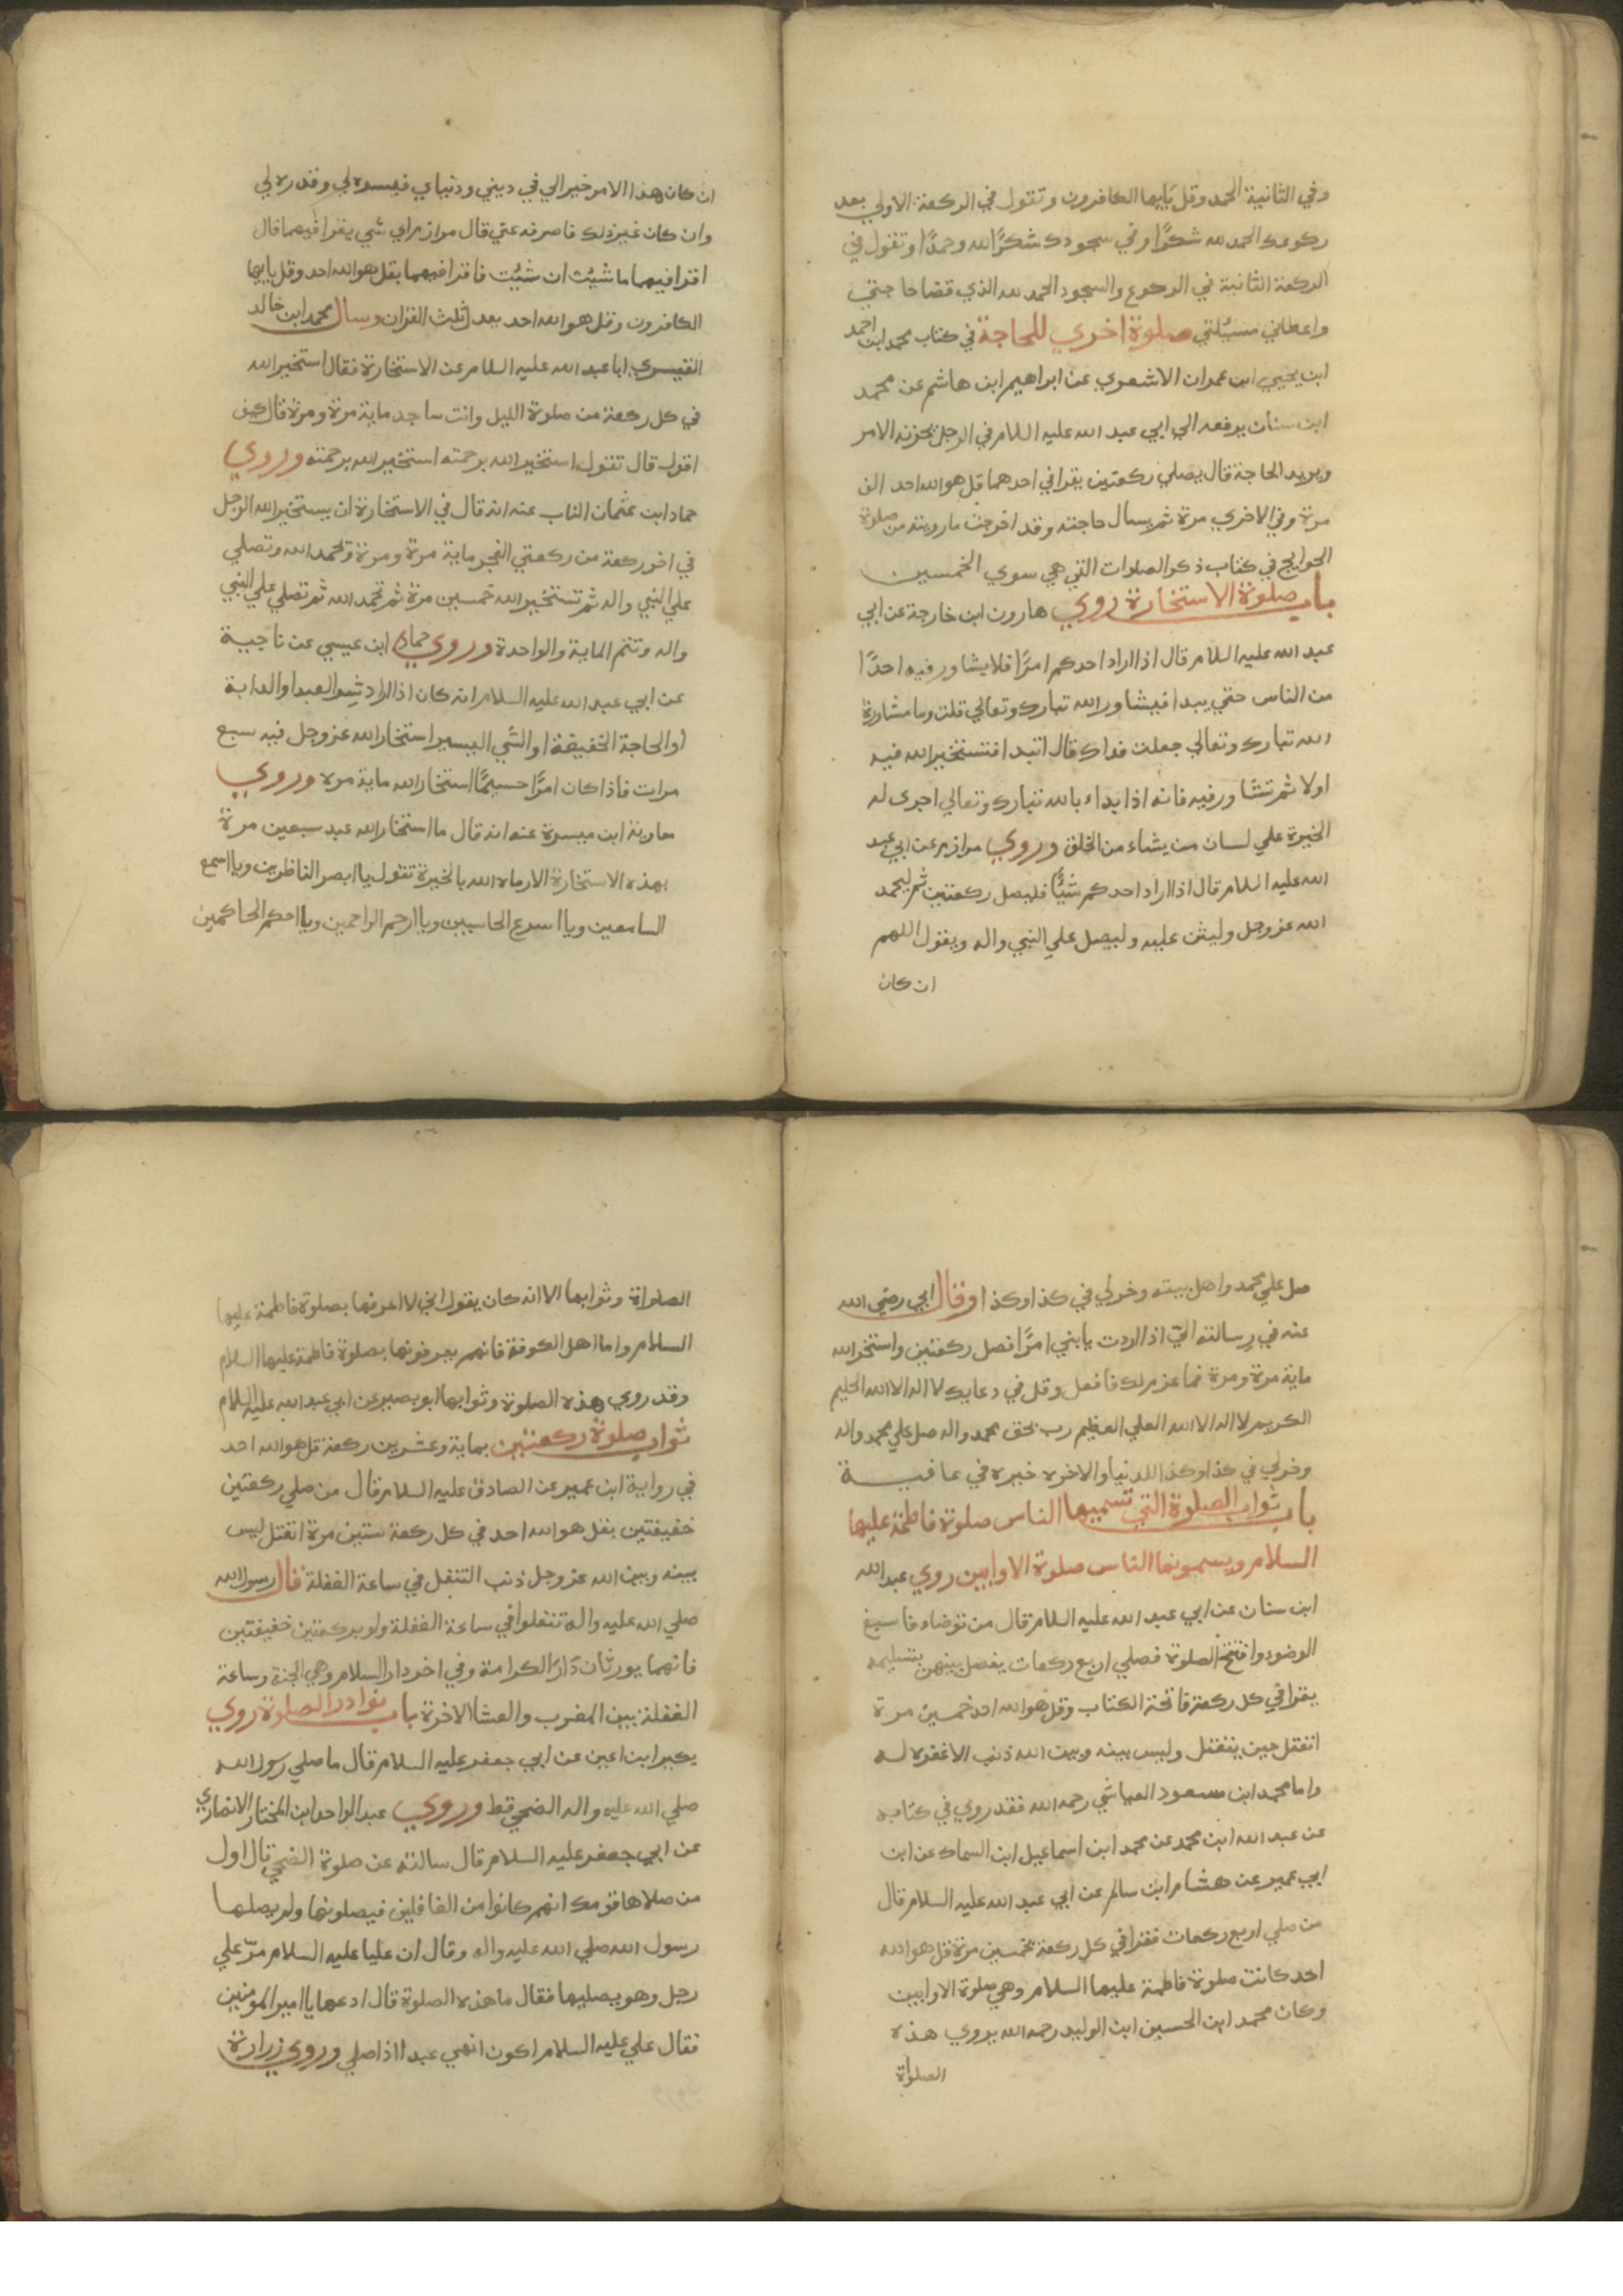 وفي الثانية الحمد وقل يايها الكافرون وتقول في الركعة الاولي بعد
ركوعك الحمد لله شكرًا وفي سجودك شكرًا لله وحمدًا وتقول في
الركعة الثانية في الركوع والسجود الحمد لله الذي قضا حاجتي
واعطاني مسئلتي صلوة اخري للحاجة في كتاب محمد ابن احمد
ابن يحيي ابن عمران الاشعري عن ابراهيم ابن هاشم عن محمد
ابن سنان يرفعه الي ابي عبد الله عليه السلام في الرجل يحزنه الامر
ويريد الحاجة قال يصلي ركعتين يقرا في احدهما قل هو الله احد الف
مرة وفي الاخري مرة ثم يسال حاجته وقد اخرجت ما رويته من صلوة
الحوايج في كتاب ذكر الصلوات التي هي سوي الخمسين
باب صلوة الاستخارة روي هارون ابن خارجة عن ابي
عبد الله عليه السلام قال اذا اراد احدكم امرًا فلا يشاور فيه احدًا
من الناس حتي يبدا فيشاور الله تبارك وتعالي قلت وما مشاورة
الله تبارك وتعالي جعلت فداك قال تبدا فتستخير الله فيه
اولا ثم تشاور فيه فانه اذا بداء بالله تبارك وتعالي اجري له
الخيرة علي لسان من يشاء من الخلق وروي مرازم عن ابي عبد
الله عليه السلام قال اذا اراد احدكم شيًا فليصل ركعتين ثم ليحمد
الله عز وجل وليثن عليه وليصل علي النبي واله ويقول اللهم
ان كان
ان كان هذا الامر خيرا لي في ديني ودنياي فيسره لي وقدره لي
وان كان غير ذلك فاصرفه عني قال مرازم اي شي يقرا فيهما قال
اقرا فيهما ما شيت ان شيت فاقرا فيهما بقل هو الله احد وقل يايها
الكافرون وقل هو الله احد بعدل ثلث القران وسال محمد ابن خالد
القيسري ابا عبد الله عليه السلام عن الاستخارة فقال استخير الله
في كل ركعة من صلوة الليل وانت ساجد ماية مرة ومرة قال كيف
اقول قال تقول استخير الله برحمته استخير الله برحمته وروي
حماد ابن عثمان الناب عنه انه قال في الاستخارة ان يستخير الله الرجل
في اخر ركعة من ركعتي الفجر ماية مرة ومرة وتحمد الله وتصلي
علي النبي واله ثم تستخير الله خمسين مرة ثم تحمد الله ثم تصلي علي النبي
واله وتتم الماية والواحدة وروي حماد ابن عيسي عن ناجية
عن ابي عبد الله عليه السلام انه كان اذا اراد شيء العبد او الدابة
او الحاجة الخفيفة او الشي اليسير استخار الله عز وجل فيه سبع
مرات فاذا كان امرًا جسيمًا استخار الله ماية مرة وروي
معاوية ابن ميسرة عنه انه قال ما استخار الله عبد سبعين مرة
بهذه الاستخارة الا رماه الله بالخيرة تقول يا ابصر الناظرين ويا اسمع
السامعين ويا اسرع الحاسبين ويا ارحم الراحمين ويا احكم الحاكمين
صل علي محمد واهل بيته وخر لي في كذا وكذا وقال ابي رضي الله
عنه في رسالته الي اذا اردت يا بني امرًا فصل ركعتين واستخر الله
ماية مرة ومرة فما عزم لك فافعل وقل في دعايك لا اله الا الله الحليم
الكريم لا اله الا الله العلي العظيم رب بحق محمد واله صل علي محمد واله
وخر لي في كذا وكذا للدنيا والاخره خيره في عافيـــة
باب ثواب الصلوة التي تسميها الناس صلوة فاطمة عليها
السلام ويسمونها الناس صلوة الاوابين روي عبد الله
ابن سنان عن ابي عبد الله عليه السلام قال من توضاء فاسبغ
الوضوء وافتتح الصلوة فصلي اربع ركعات يفصل بينهن بتسليمه
يقرا في كل ركعة فاتحة الكتاب وقل هو الله احد خمسين مرة
انفتل حين ينفتل وليس بينه وبين الله ذنب الا غفره له
واما محمد ابن مسعود العياشي رحمه الله فقد روي في كتابه
عن عبد الله ابن محمد عن محمد ابن اسماعيل ابن السماك عن ابن
ابي عمير عن هشام ابن سالم عن ابي عبد الله عليه السلام قال
من صلي اربع ركعات فقرا في كل ركعة بخمسين مرة قل هو الله
احد كانت صلوة فاطمة عليها السلام وهي صلوة الاوابين
وكان محمد ابن الحسين ابن الوليد رحمه الله يروي هذه
الصلواة
الصلواة وثوابها الا انه كان يقول اني لا اعرفها بصلوة فاطمة عليها
السلام واما اهل الكوفة فانهم يعرفونها بصلوة فاطمة عليها السلام
وقد روي هذه الصلوة وثوابها ابو بصير عن ابي عبد الله عليه السلام
ثواب صلوة ركعتين بماية وعشرين ركعة قل هو الله احد
في رواية ابن عمير عن الصادق عليه السلام قال من صلي ركعتين
خفيفتين بقل هو الله احد في كل ركعة ستين مرة انفتل ليس
بينه وبين الله عز وجل ذنب التنفل في ساعة الغفلة قال رسول الله
صلي الله عليه واله تنفلوا في ساعة الغفلة ولو بركعتين خفيفتين
فانهما يورثان دار الكرامة وفي اخر دار السلام وهي الجنة وساعة
الغفلة بين المغرب والعشا الاخرة باب نوادر الصلوة روي
بكير ابن اعين عن ابي جعفر عليه السلام قال ما صلي رسول الله
صلي الله عليه واله الضحي قط وروي عبد الواحد ابن المختار الانصاري
عن ابي جعفر عليه السلام قال سالته عن صلوة الضحي قال اول
من صلاها قومك انهم كانوا من الغافلين فيصلونها ولم يصلها
رسول الله صلي الله عليه واله وقال ان عليا عليه السلام مرّ علي
رجل وهو يصليها فقال ما هذه الصلوة قال ادعها يا امير المومنين
فقال علي عليه السلام اكون انهي عبدا اذا صلي وروي زرارة